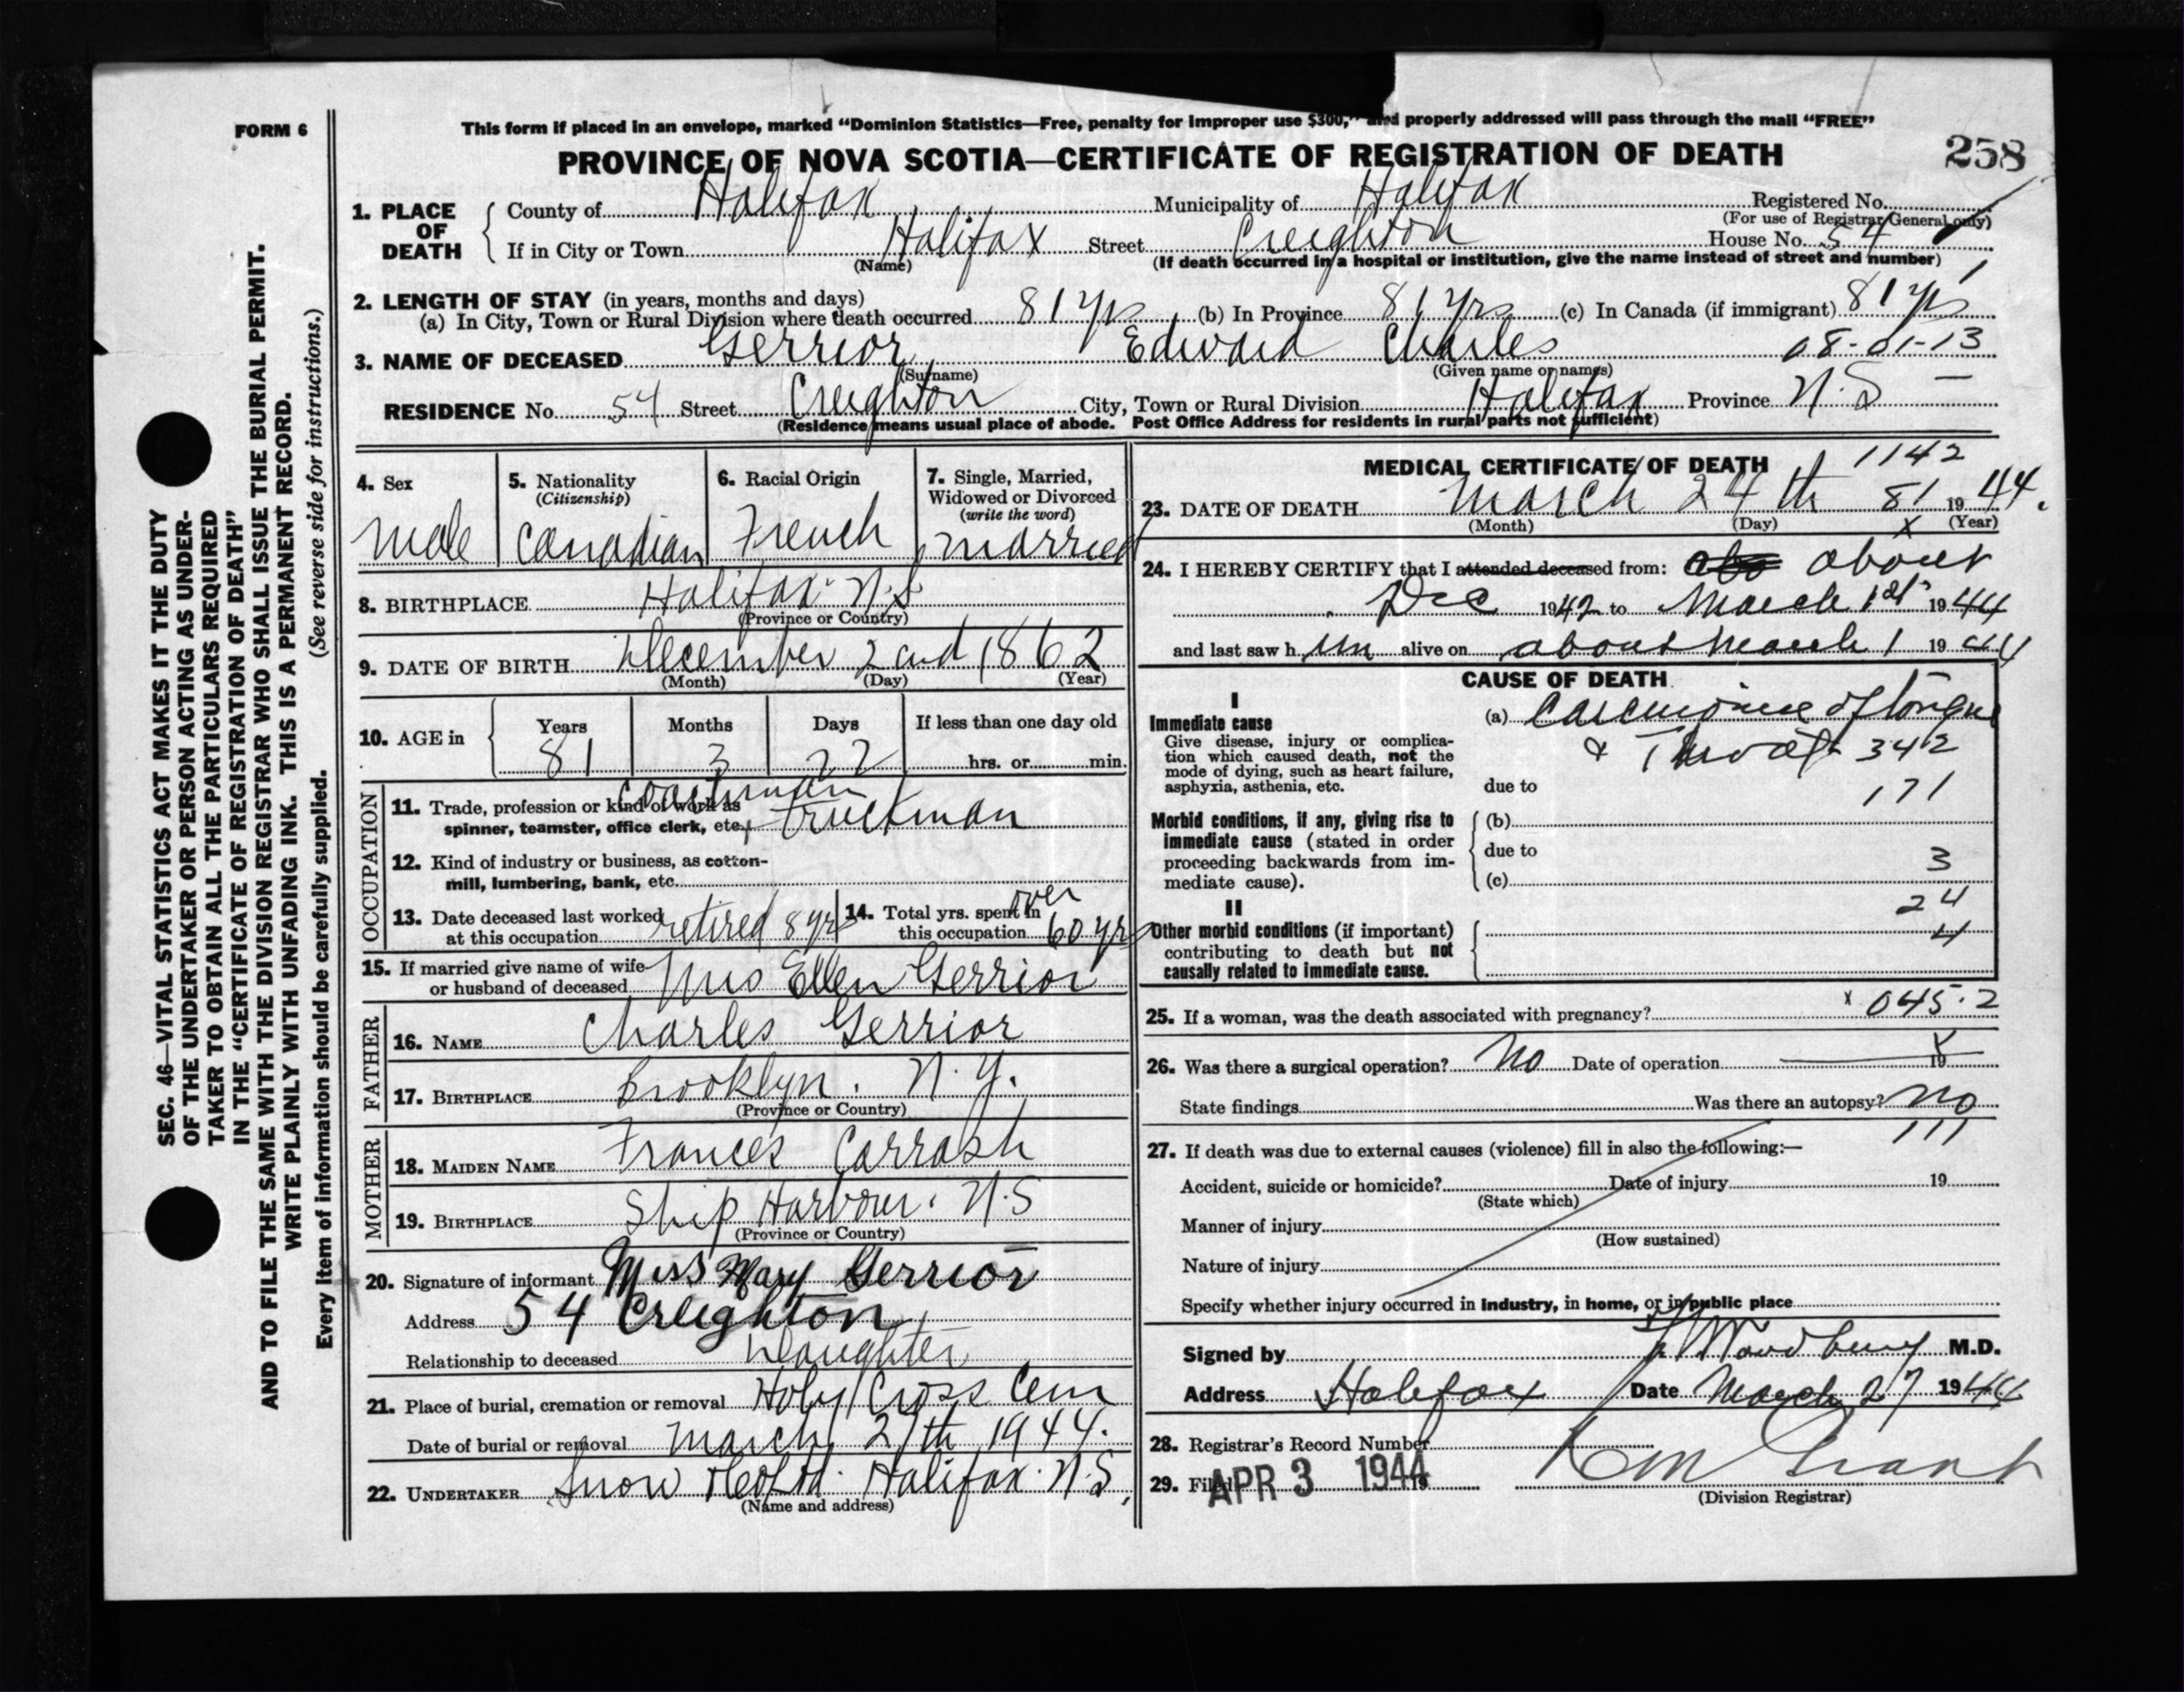 FORM 6
This form if placed in an envelope, marked “Dominion Statistics—Free, penalty for improper use $300,” and properly addressed will pass through the mail “FREE”
PROVINCE OF NOVA SCOTIA—CERTIFICATE OF REGISTRATION OF DEATH 258
1. PLACE OF DEATH { County of Halifax Municipality of Halifax Registered No.
(For use of Registrar General only)
If in City or Town Halifax Street Creighton House No. 54
(Name) (If death occurred in a hospital or institution, give the name instead of street and number)
2. LENGTH OF STAY (in years, months and days)
(a) In City, Town or Rural Division where death occurred 81 yrs (b) In Province 81 yrs (c) In Canada (if immigrant) 81 yrs
3. NAME OF DECEASED Gerrior, Edward Charles 08-01-13
(Surname) (Given name or names)
RESIDENCE No. 54 Street Creighton City, Town or Rural Division Halifax Province N.S —
(Residence means usual place of abode. Post Office Address for residents in rural parts not sufficient)
4. Sex 5. Nationality (Citizenship) 6. Racial Origin 7. Single, Married, Widowed or Divorced (write the word)
Male Canadian French married
8. BIRTHPLACE Halifax N.S
(Province or Country)
9. DATE OF BIRTH December 2nd 1862
(Month) (Day) (Year)
10. AGE in { Years Months Days If less than one day old
81 3 22 hrs. or min.
OCCUPATION
11. Trade, profession or kind of work as coachman
spinner, teamster, office clerk, etc. truckman
12. Kind of industry or business, as cotton-
mill, lumbering, bank, etc.
13. Date deceased last worked at this occupation retired 8 yrs 14. Total yrs. spent in this occupation over 60 yrs
15. If married give name of wife
or husband of deceased Mrs Ellen Gerrior
FATHER
16. NAME Charles Gerrior
17. BIRTHPLACE Brooklyn. N.Y.
(Province or Country)
MOTHER
18. MAIDEN NAME Frances Carrash
19. BIRTHPLACE Ship Harbour. N.S
(Province or Country)
20. Signature of informant Miss Mary Gerrior
Address 54 Creighton
Relationship to deceased Daughter
21. Place of burial, cremation or removal Holy Cross Cem
Date of burial or removal March 27th 1944.
22. UNDERTAKER Snow Halifax. N.S.
(Name and address)
MEDICAL CERTIFICATE OF DEATH 1142
23. DATE OF DEATH March 24th 81 1944.
(Month) (Day) x (Year)
24. I HEREBY CERTIFY that I attended deceased from: abo about
Dec 1942 to March 1st 1944
and last saw h im alive on about March 1 1944
CAUSE OF DEATH
I
Immediate cause
Give disease, injury or complica-
tion which caused death, not the
mode of dying, such as heart failure,
asphyxia, asthenia, etc.
(a) Carcinoma of tongue
& Throat 342
due to 171
Morbid conditions, if any, giving rise to
immediate cause (stated in order
proceeding backwards from im-
mediate cause).
(b)
due to
(c) 3
II 24
Other morbid conditions (if important)
contributing to death but not
causally related to immediate cause.
4
25. If a woman, was the death associated with pregnancy? x 045.2
26. Was there a surgical operation? No Date of operation 19 x
State findings Was there an autopsy? No
27. If death was due to external causes (violence) fill in also the following:— 111
Accident, suicide or homicide? Date of injury 19
(State which)
Manner of injury
(How sustained)
Nature of injury
Specify whether injury occurred in industry, in home, or in public place
Signed by Woodbury M.D.
Address Halifax Date March 27 1944
28. Registrar's Record Number
29. Filed APR 3 1944 19 Grant
(Division Registrar)
SEC. 46—VITAL STATISTICS ACT MAKES IT THE DUTY
OF THE UNDERTAKER OR PERSON ACTING AS UNDER-
TAKER TO OBTAIN ALL THE PARTICULARS REQUIRED
IN THE “CERTIFICATE OF REGISTRATION OF DEATH”
AND TO FILE THE SAME WITH THE DIVISION REGISTRAR WHO SHALL ISSUE THE BURIAL PERMIT.
WRITE PLAINLY WITH UNFADING INK. THIS IS A PERMANENT RECORD.
Every item of information should be carefully supplied. (See reverse side for instructions.)